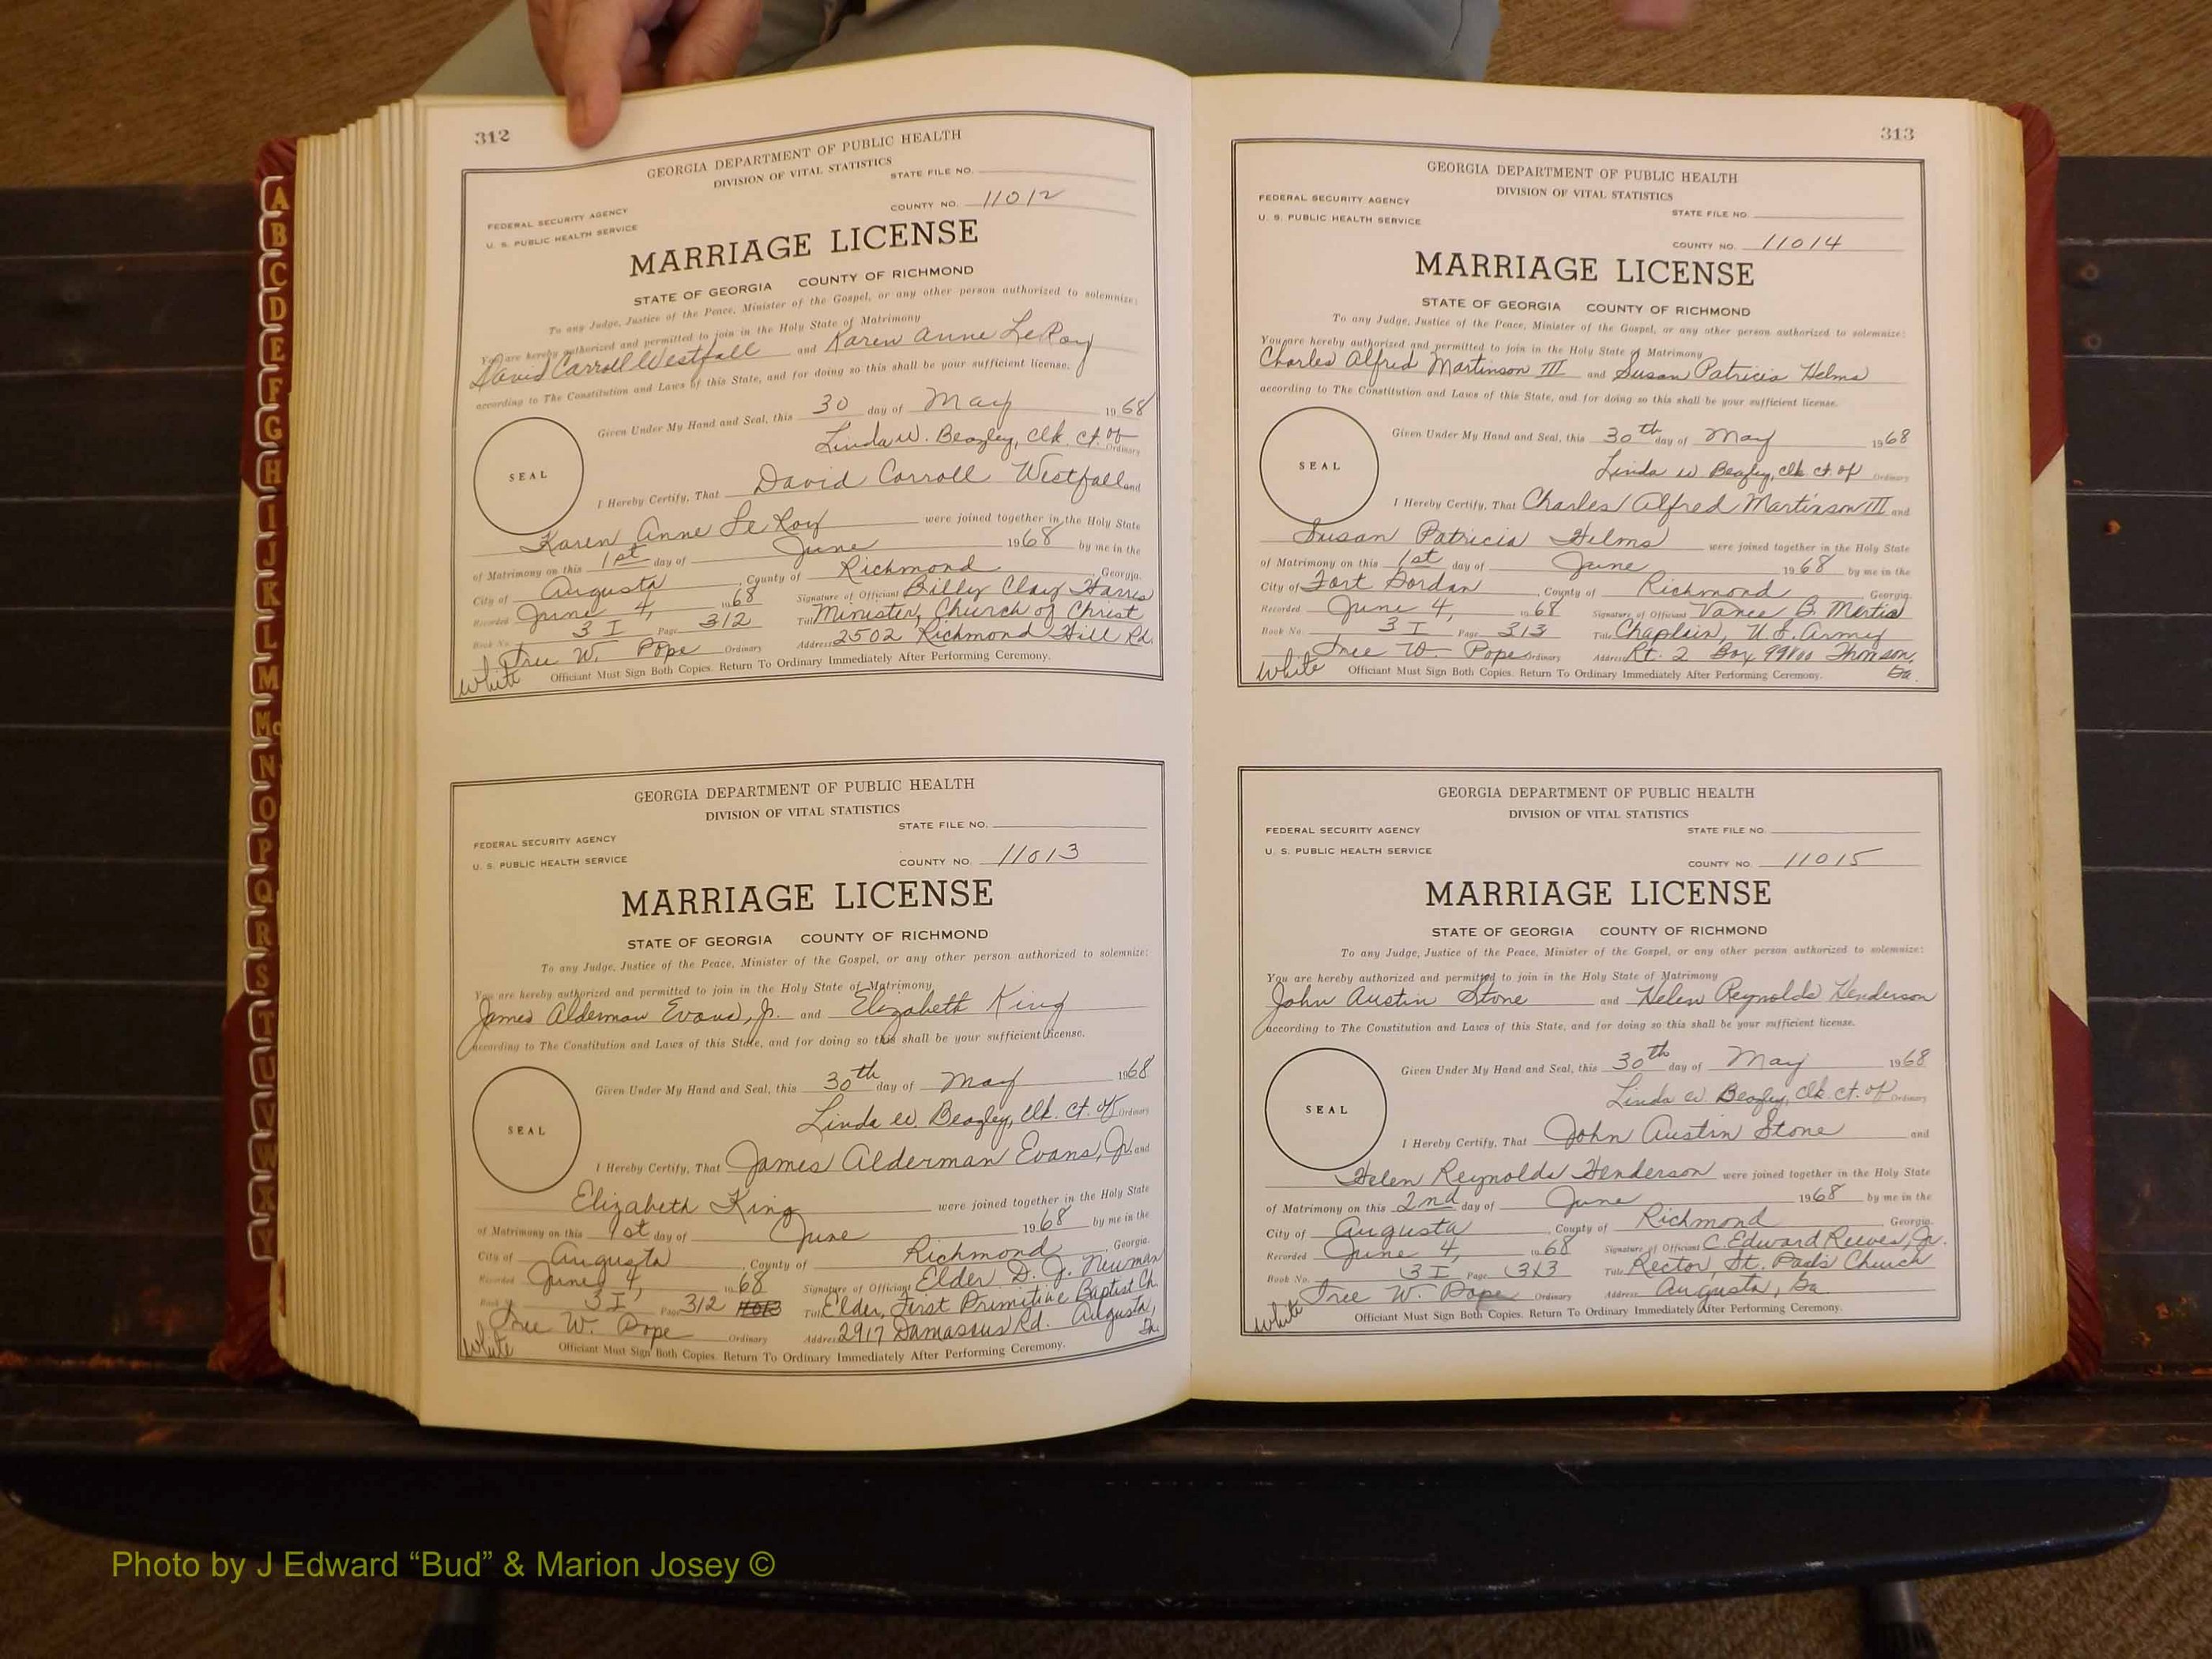 312
GEORGIA DEPARTMENT OF PUBLIC HEALTH
DIVISION OF VITAL STATISTICS
STATE FILE NO.
FEDERAL SECURITY AGENCY
COUNTY NO. 11012
U. S. PUBLIC HEALTH SERVICE
MARRIAGE LICENSE
STATE OF GEORGIA COUNTY OF RICHMOND
To any Judge, Justice of the Peace, Minister of the Gospel, or any other person authorized to solemnize:
You are hereby authorized and permitted to join in the Holy State of Matrimony
David Carroll Westfall and Karen Anne LeRoy
according to The Constitution and Laws of this State, and for doing so this shall be your sufficient license.
Given Under My Hand and Seal, this 30 day of May 1968
Linda W. Beazley, Clk. Ct. of Ordinary
SEAL
I Hereby Certify, That David Carroll Westfall and
Karen Anne LeRoy were joined together in the Holy State
of Matrimony on this 1st day of June 1968 by me in the
City of Augusta, County of Richmond, Georgia.
Recorded June 4, 1968 Signature of Officiant Billy Clay Harris
Book No. 3 I Page 312 Title Minister, Church of Christ
Free W. Pope Ordinary Address 2502 Richmond Hill Rd.
White Officiant Must Sign Both Copies. Return To Ordinary Immediately After Performing Ceremony.
GEORGIA DEPARTMENT OF PUBLIC HEALTH
DIVISION OF VITAL STATISTICS
STATE FILE NO.
FEDERAL SECURITY AGENCY
U. S. PUBLIC HEALTH SERVICE
COUNTY NO. 11013
MARRIAGE LICENSE
STATE OF GEORGIA COUNTY OF RICHMOND
To any Judge, Justice of the Peace, Minister of the Gospel, or any other person authorized to solemnize:
You are hereby authorized and permitted to join in the Holy State of Matrimony
James Alderman Evans, Jr. and Elizabeth King
according to The Constitution and Laws of this State, and for doing so this shall be your sufficient license.
Given Under My Hand and Seal, this 30th day of May 1968
Linda W. Beazley, Clk. Ct. of Ordinary
SEAL
I Hereby Certify, That James Alderman Evans, Jr. and
Elizabeth King were joined together in the Holy State
of Matrimony on this 1st day of June 1968 by me in the
City of Augusta, County of Richmond, Georgia.
Recorded June 4, 1968 Signature of Officiant Elder D. G. Newman
Book No. 3 I Page 312 Title Elder, First Primitive Baptist Ch.
Free W. Pope Ordinary Address 2917 Damascus Rd. Augusta, Ga.
White Officiant Must Sign Both Copies. Return To Ordinary Immediately After Performing Ceremony.
313
GEORGIA DEPARTMENT OF PUBLIC HEALTH
DIVISION OF VITAL STATISTICS
FEDERAL SECURITY AGENCY
STATE FILE NO.
U. S. PUBLIC HEALTH SERVICE
COUNTY NO. 11014
MARRIAGE LICENSE
STATE OF GEORGIA COUNTY OF RICHMOND
To any Judge, Justice of the Peace, Minister of the Gospel, or any other person authorized to solemnize:
You are hereby authorized and permitted to join in the Holy State of Matrimony
Charles Alfred Martinson III and Susan Patricia Helms
according to The Constitution and Laws of this State, and for doing so this shall be your sufficient license.
Given Under My Hand and Seal, this 30th day of May 1968
Linda W. Beazley, Clk Ct. of Ordinary
SEAL
I Hereby Certify, That Charles Alfred Martinson III and
Susan Patricia Helms were joined together in the Holy State
of Matrimony on this 1st day of June 1968 by me in the
City of Fort Gordon, County of Richmond, Georgia.
Recorded June 4, 1968 Signature of Officiant Vance B.
Book No. 3 I Page 313 Title Chaplain, U.S. Army
Free W. Pope Ordinary Address Rt. 2 Box Thomson, Ga.
White Officiant Must Sign Both Copies. Return To Ordinary Immediately After Performing Ceremony.
GEORGIA DEPARTMENT OF PUBLIC HEALTH
DIVISION OF VITAL STATISTICS
FEDERAL SECURITY AGENCY
STATE FILE NO.
U. S. PUBLIC HEALTH SERVICE
COUNTY NO. 11015
MARRIAGE LICENSE
STATE OF GEORGIA COUNTY OF RICHMOND
To any Judge, Justice of the Peace, Minister of the Gospel, or any other person authorized to solemnize:
You are hereby authorized and permitted to join in the Holy State of Matrimony
John Austin Stone and Helen Reynolds Henderson
according to The Constitution and Laws of this State, and for doing so this shall be your sufficient license.
Given Under My Hand and Seal, this 30th day of May 1968
Linda W Beazley, Clk. Ct. of Ordinary
SEAL
I Hereby Certify, That John Austin Stone and
Helen Reynolds Henderson were joined together in the Holy State
of Matrimony on this 2nd day of June 1968 by me in the
City of Augusta, County of Richmond, Georgia.
Recorded June 4, 1968 Signature of Officiant C. Edward Reeves, Jr.
Book No. 3 I Page 313 Title Rector, St. Paul's Church
Free W. Pope Ordinary Address Augusta, Ga.
White Officiant Must Sign Both Copies. Return To Ordinary Immediately After Performing Ceremony.
A
B
C
D
E
F
G
H
I
J
K
L
M
Mc
N
O
P
Q
R
S
T
U
V
W
X
Y
Photo by J Edward “Bud” & Marion Josey ©